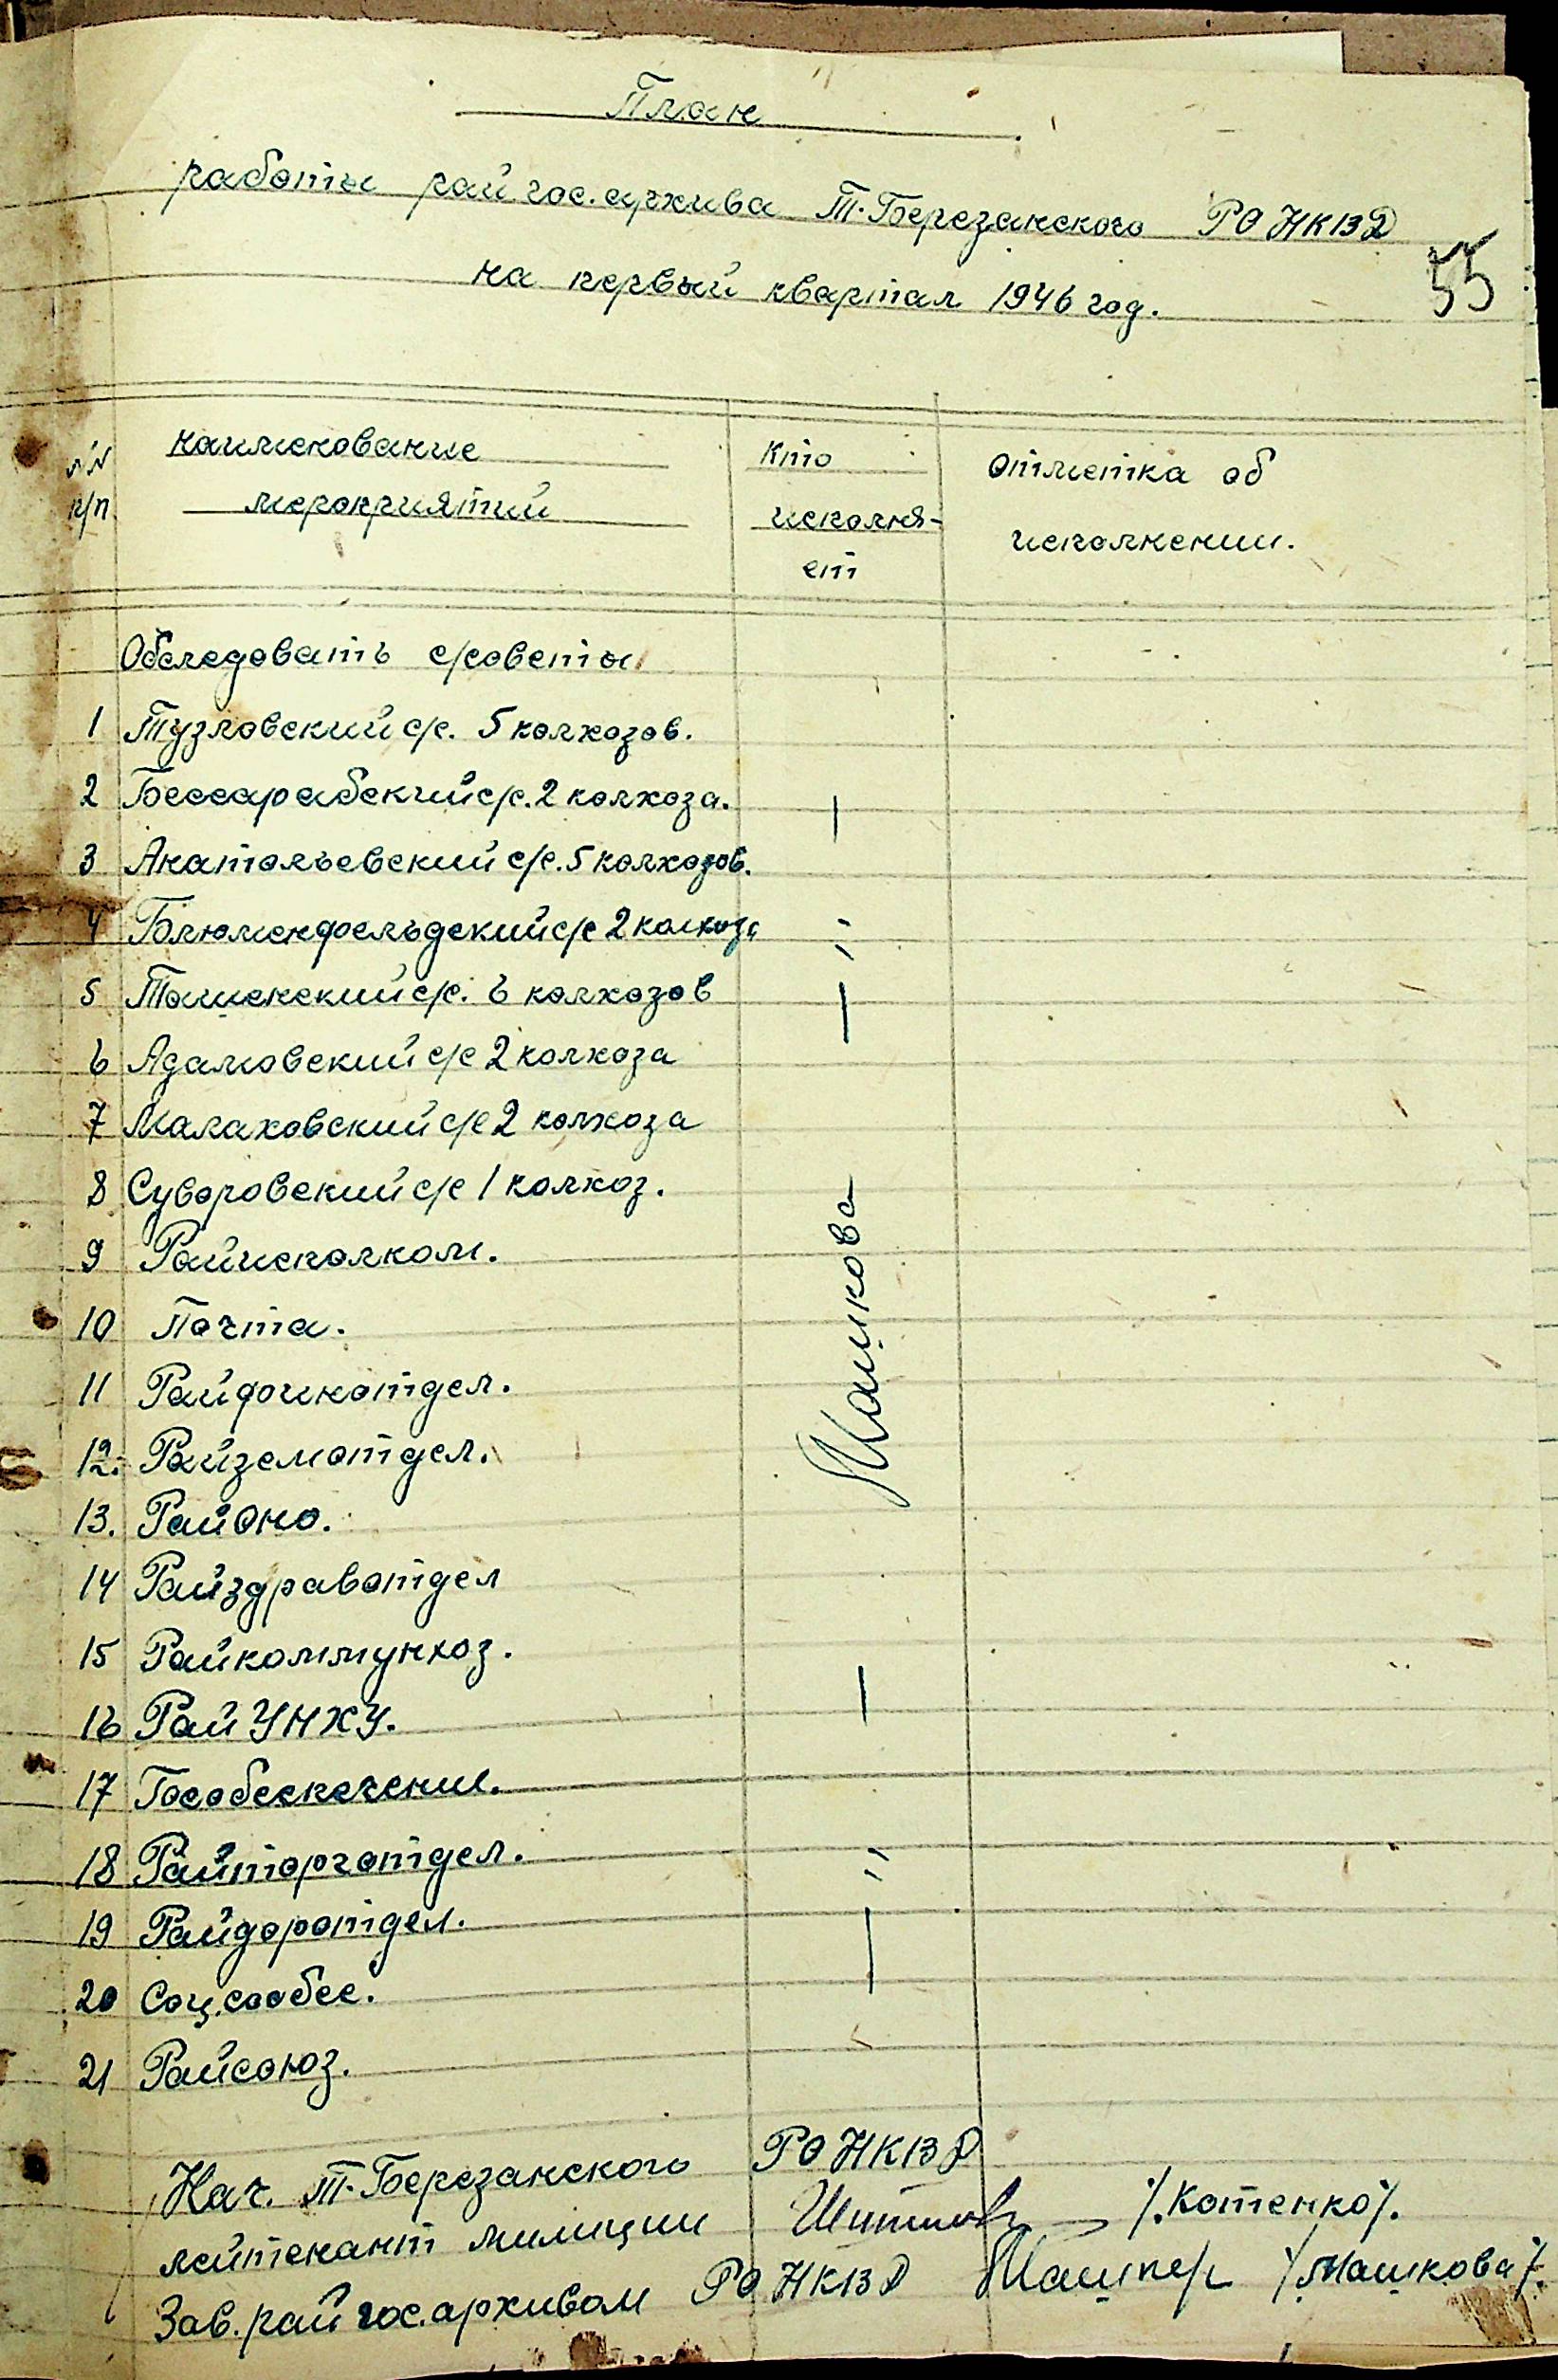 План
работы рай.гос.архива Т.Березанского РО НКВД
на первый квартал 1946 год.
55
№№ п/п наименование мероприятий кто исполня-ет отметка об исполнении.
Обследовать с/советы
1 Тузловский с/с. 5 колхозов.
2 Бессарабский с/с. 2 колхоза.
3 Анатольевский с/с. 5 колхозов.
4 Блюменфельдский с/с 2 колхоза
5 Ташинский с/с. 6 колхозов
6 Адамовский с/с 2 колхоза
7 Малаховский с/с 2 колхоза
8 Суворовский с/с 1 колхоз.
9 Райисполком.
Машкова
10 Почта.
11 Райфинотдел.
12. Райземотдел.
13. РайОно.
14 Райздравотдел
15 Райкоммунхоз.
16 Рай УНХУ.
17 Гособеспечение.
18 Райторготдел.
19 Райдоротдел.
20 Соц.сообес.
21 Райсоюз.
Нач. Т.Березанского РО НКВД
лейтенант милиции /.Котенко/.
Зав.рай гос.архивом РО НКВД /.Машкова/.